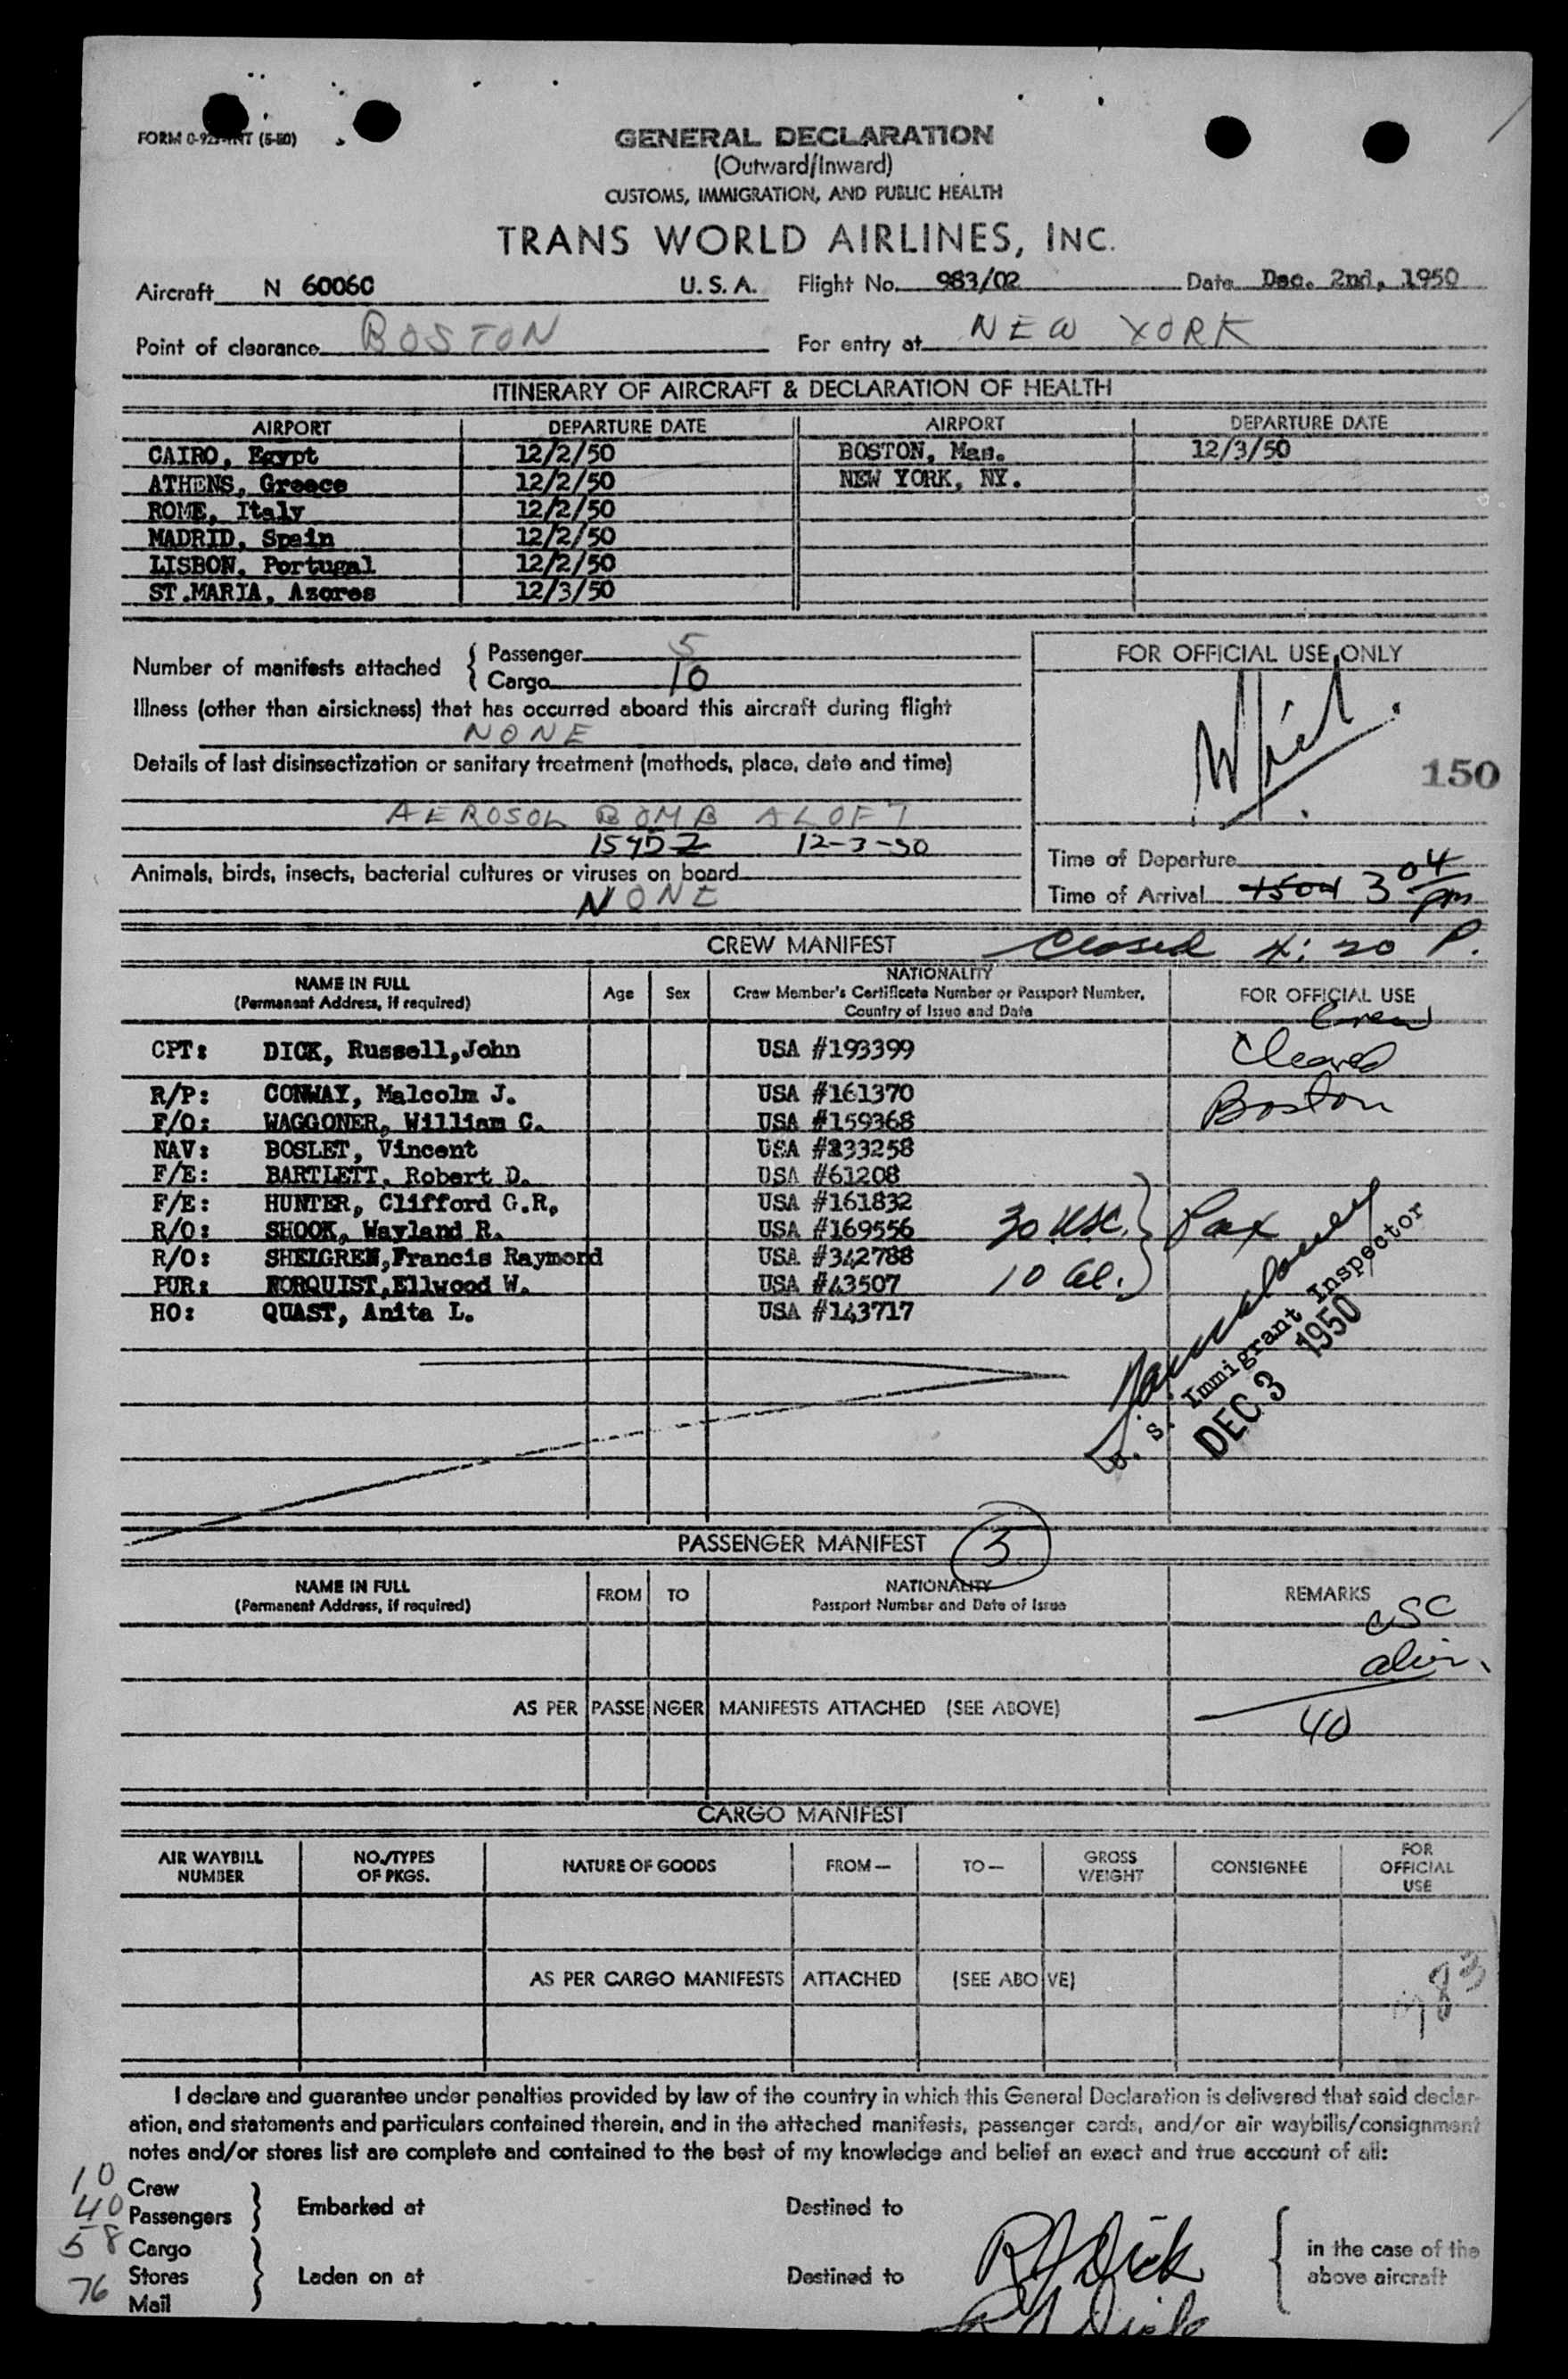 FORM 0-92 -INT (5-50)
GENERAL DECLARATION
(Outward/Inward)
CUSTOMS, IMMIGRATION, AND PUBLIC HEALTH
TRANS WORLD AIRLINES, INC.
Aircraft N 6006C U. S. A. Flight No. 983/02 Date Dec. 2nd, 1950
Point of clearance BOSTON For entry at NEW YORK
ITINERARY OF AIRCRAFT & DECLARATION OF HEALTH
AIRPORT DEPARTURE DATE AIRPORT DEPARTURE DATE
CAIRO, Egypt 12/2/50 BOSTON, Mas. 12/3/50
ATHENS, Greece 12/2/50 NEW YORK, NY.
ROME, Italy 12/2/50
MADRID, Spain 12/2/50
LISBON, Portugal 12/2/50
ST.MARIA, Azores 12/3/50
Number of manifests attached { Passenger 5
Cargo 10
FOR OFFICIAL USE ONLY
Illness (other than airsickness) that has occurred aboard this aircraft during flight
NONE
Details of last disinsectization or sanitary treatment (methods, place, date and time)
150
AEROSOL BOMB ALOFT
1545Z 12-3-50
Animals, birds, insects, bacterial cultures or viruses on board
NONE
Time of Departure
Time of Arrival 1504 3 04 pm
CREW MANIFEST Closed 4:20 P.
NAME IN FULL
(Permanent Address, if required) Age Sex NATIONALITY
Crew Member's Certificate Number or Passport Number,
Country of Issue and Date
FOR OFFICIAL USE
Crew
Cleared
Boston
CPT: DICK, Russell,John USA #193399
R/P: CONWAY, Malcolm J. USA #161370
F/O: WAGGONER, William C. USA #159368
NAV: BOSLET, Vincent USA #233258
F/E: BARTLETT, Robert D. USA #61208
F/E: HUNTER, Clifford G.R, USA #161832
R/O: SHOOK, Wayland R. USA #169556 30 USC. } Pax
R/O: SHELGREN,Francis Raymond USA #342788
PUR: NORQUIST,Ellwood W. USA #43507 10 al.
HO: QUAST, Anita L. USA #143717
U. S. Immigrant Inspector
DEC 3 1950
PASSENGER MANIFEST 5
NAME IN FULL
(Permanent Address, if required) FROM TO NATIONALITY
Passport Number and Date of Issue
REMARKS
USC
alien
AS PER PASSENGER MANIFESTS ATTACHED (SEE ABOVE)
40
CARGO MANIFEST
AIR WAYBILL NUMBER NO./TYPES OF PKGS. NATURE OF GOODS FROM — TO — GROSS WEIGHT CONSIGNEE FOR OFFICIAL USE
AS PER CARGO MANIFESTS ATTACHED (SEE ABOVE)
983
I declare and guarantee under penalties provided by law of the country in which this General Declaration is delivered that said declar-
ation, and statements and particulars contained therein, and in the attached manifests, passenger cards, and/or air waybills/consignment
notes and/or stores list are complete and contained to the best of my knowledge and belief an exact and true account of all:
10 Crew
40 Passengers } Embarked at Destined to
58 Cargo
Stores } Laden on at Destined to
76 Mail
RJ Dick
{ in the case of the
above aircraft
RJ Dick